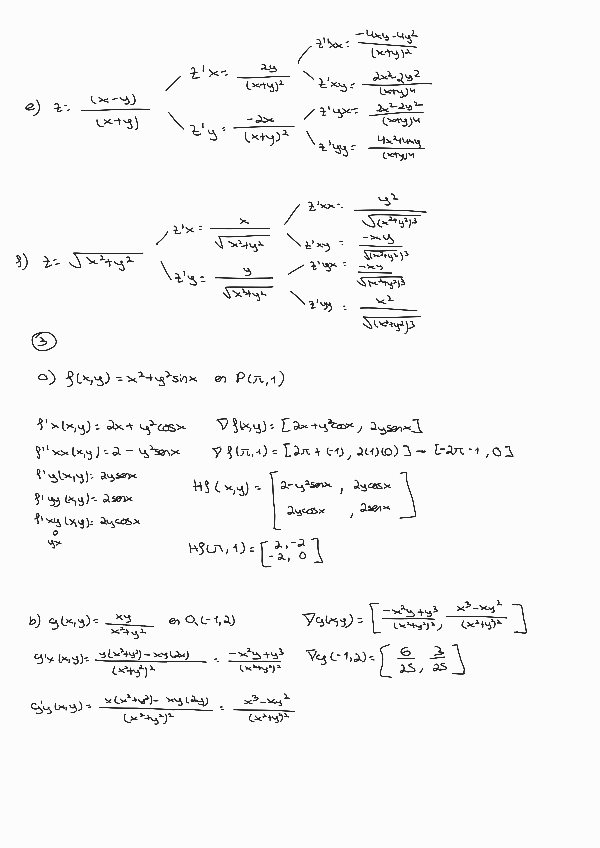 e) z = (x-y)/(x+y)
z'x = 2y/(x+y)²
z'xx = (-4xy-4y²)/(x+y)²
z'xy = (2x²-2y²)/(x+y)⁴
z'y = -2x/(x+y)²
z'yx = (2x²-2y²)/(x+y)⁴
z'yy = (4x²+4xy)/(x+y)⁴
f) z = √(x²+y²)
z'x = x/√(x²+y²)
z'xx = y²/√(x²+y²)³
z'xy = -xy/√(x²+y²)³
z'y = y/√(x²+y²)
z'yx = -xy/√(x²+y²)³
z'yy = x²/√(x²+y²)³
③
a) f(x,y) = x²+y²sinx en P(π,1)
f'x(x,y) = 2x + y²cosx ∇f(x,y) = [2x+y²cosx, 2ysenx]
f''xx(x,y) = 2 - y²senx ∇f(π,1) = [2π+(-1), 2(1)(0)] → [-2π-1, 0]
f'y(x,y) = 2ysenx
f'yy(x,y) = 2senx Hf(x,y) = [2-y²senx, 2ycosx
f'xy(x,y) = 2ycosx 2ycosx, 2senx]
yx Hf(π,1) = [2, -2
-2, 0]
b) g(x,y) = xy/(x²+y²) en Q(-1,2) ∇g(x,y) = [(-x²y+y³)/(x²+y²)², (x³-xy²)/(x²+y²)²]
g'x(x,y) = (y(x²+y²)-xy(2x))/(x²+y²)² = (-x²y+y³)/(x²+y²)² ∇g(-1,2) = [6/25, 3/25]
g'y(x,y) = (x(x²+y²)-xy(2y))/(x²+y²)² = (x³-xy²)/(x²+y²)²